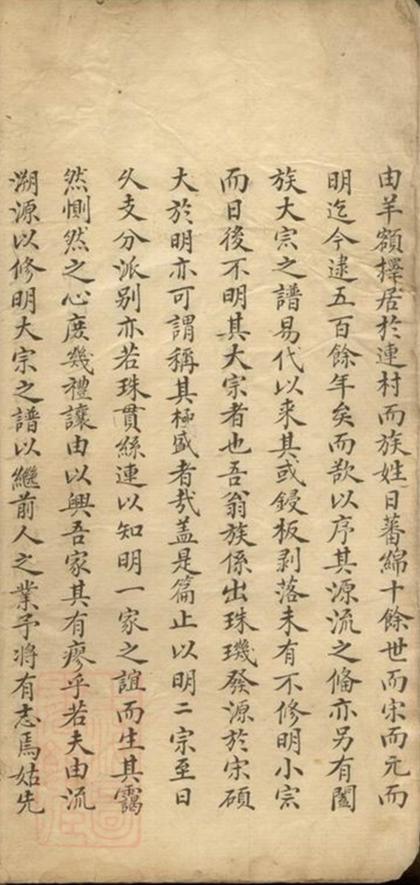 由羊額擇居於連村而族姓日蕃綿十餘世而宋而元而
明迄今逮五百餘年矣而欲以序其源流之俻亦另有闔
族大宗之譜易代以来其或鋟板剥落未有不修明小宗
而日後不明其大宗者也吾翁族係出珠璣發源於宋碩
大於明亦可謂稱其極盛者㢤盖是篇止以明二宗至日
乆支分派别亦若珠貫絲連以知明一家之誼而生其靄
然惻然之心庻幾禮讓由以興吾家其有廖乎若夫由流
溯源以修明大宗之譜以繼前人之業予将有志焉姑先